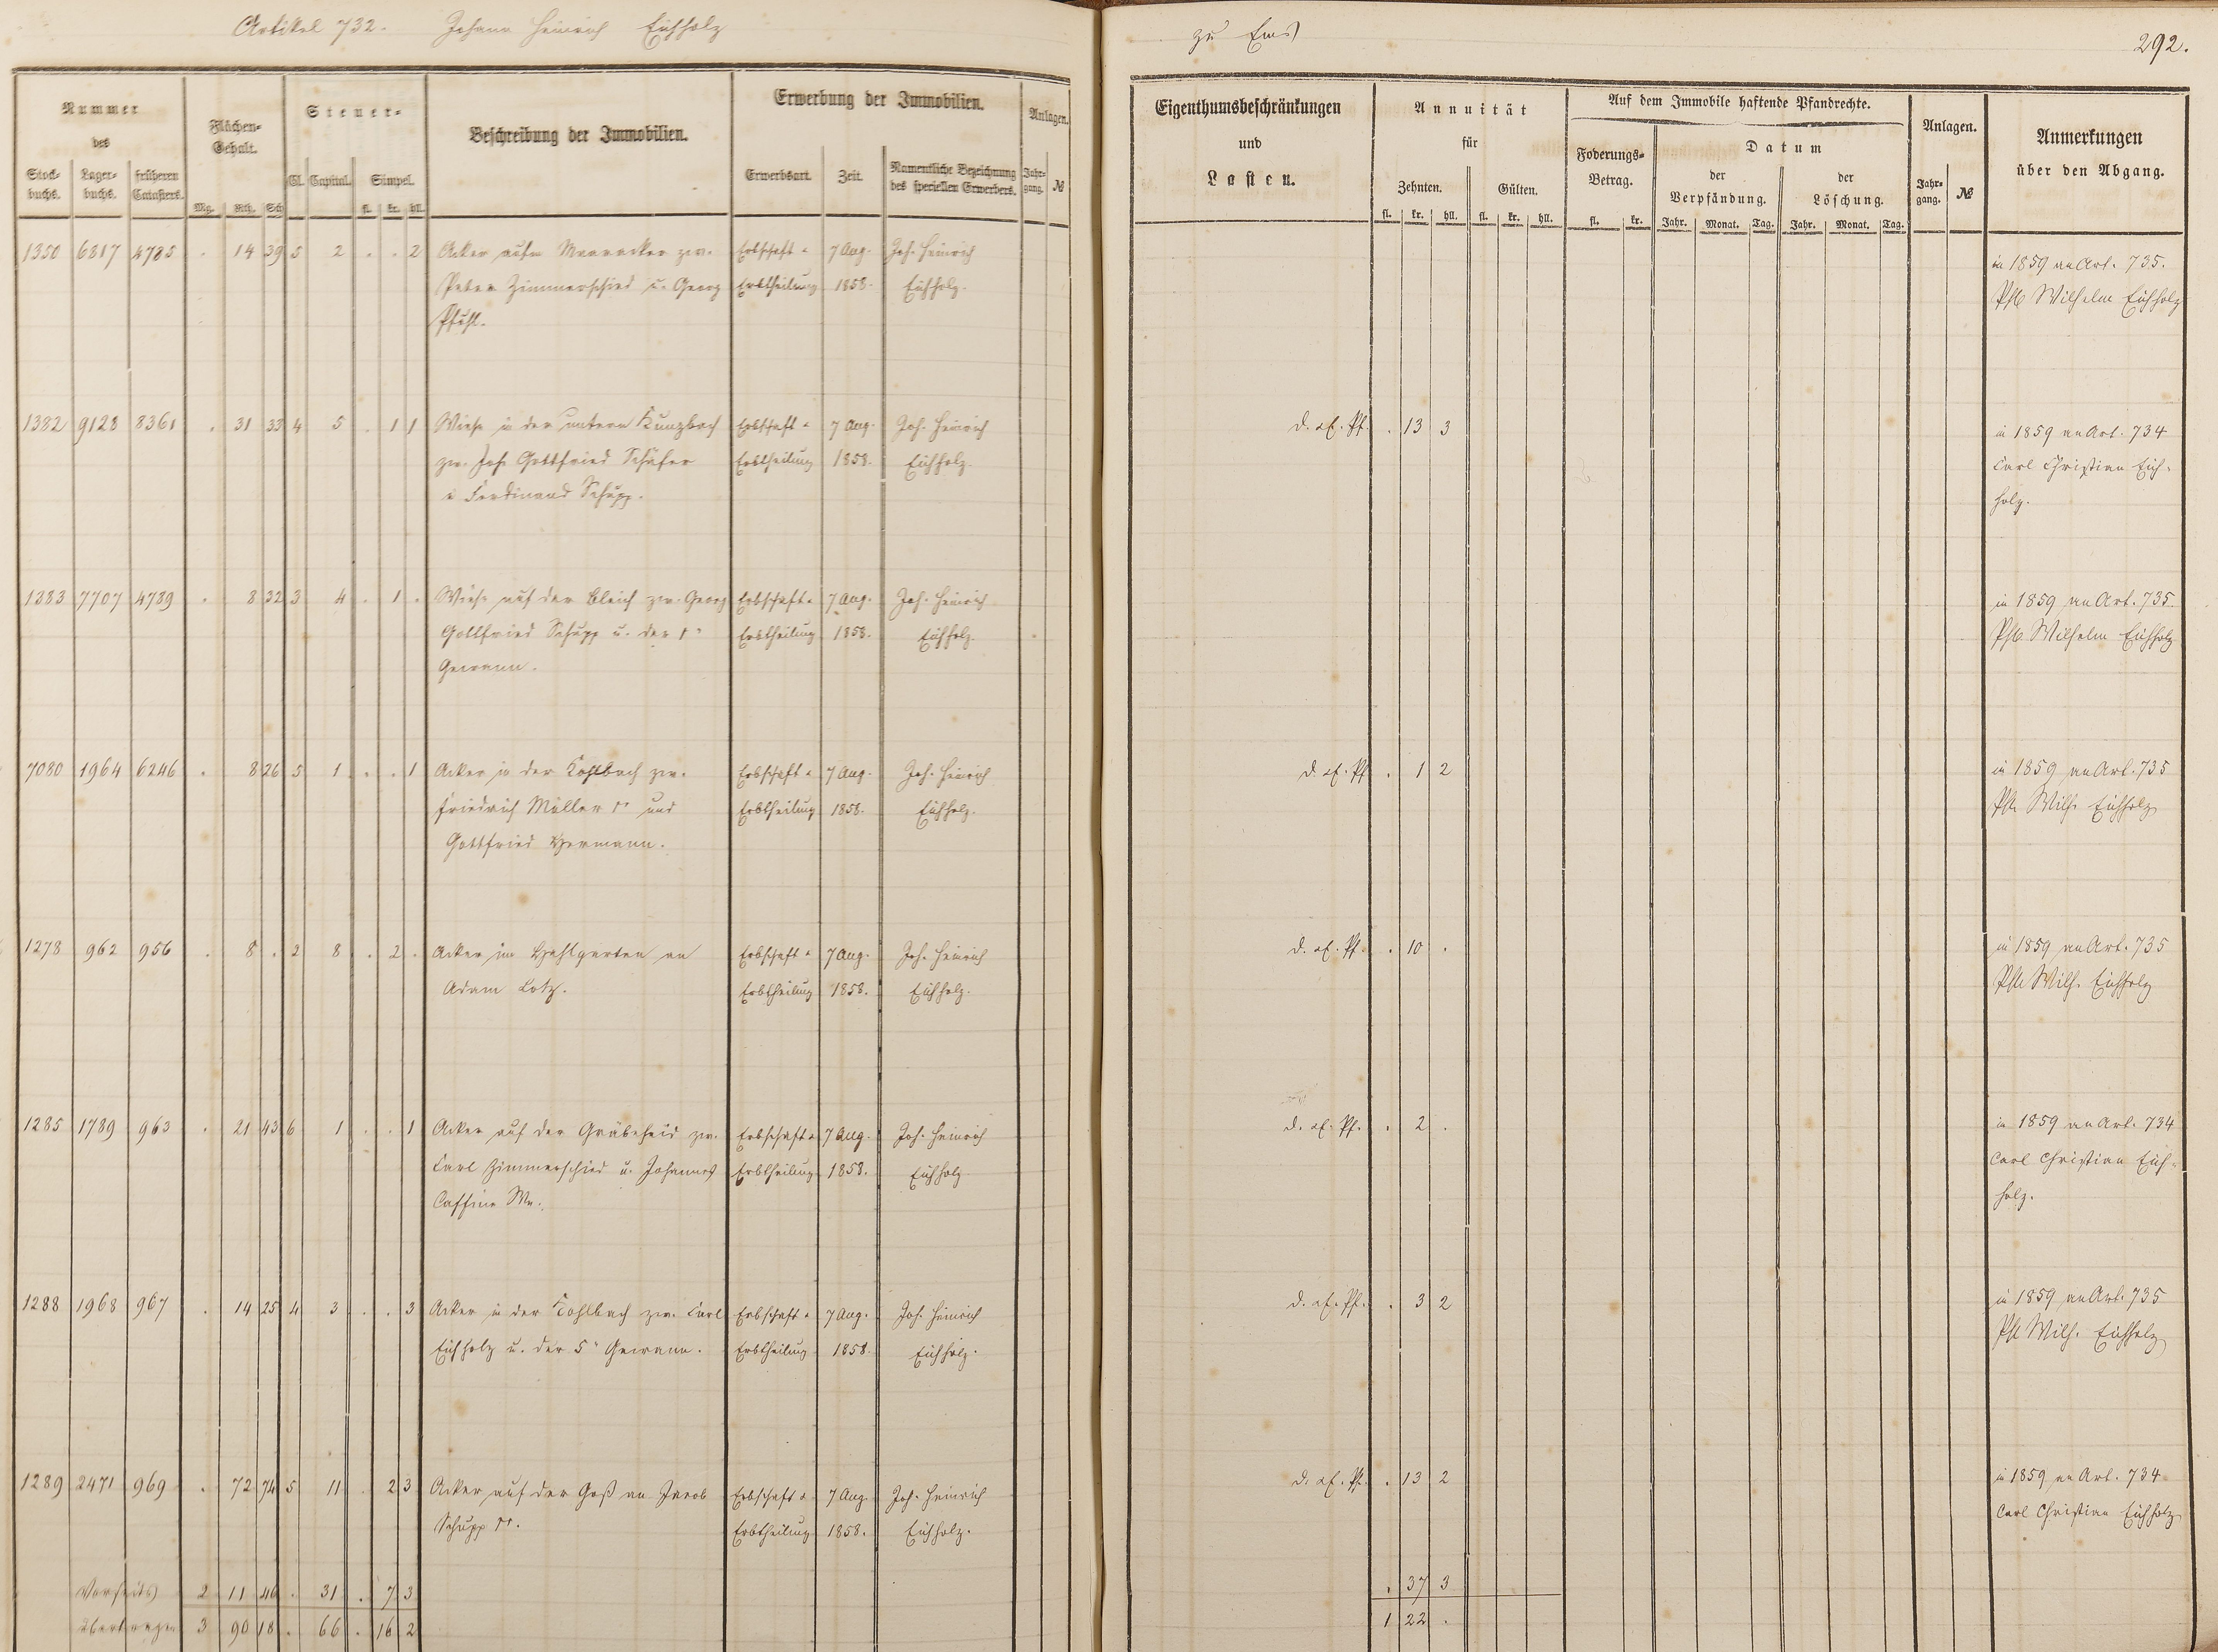 Artikel 732. Johann Heinrich Eichholz
zu Ems
292.
Nummer
des
Stock-
buchs.
Lager-
buchs.
früheren
Catasters.
Flächen-
Gehalt.
Mg. Rth. Sch
Steuer-
Cl. Capital. Simpel.
fl. kr. hll.
Beschreibung der Immobilien.
Erwerbung der Immobilien.
Erwerbsart. Zeit. Namentliche Bezeichnung
des speciellen Erwerbers.
Anlagen.
Jahr-
gang. №
Eigenthumsbeschränkungen
und
Lasten.
Annuität
für
Zehnten. Gülten.
fl. kr. hll. fl. kr. hll.
Auf dem Immobile haftende Pfandrechte.
Foderungs-
Betrag.
fl. kr.
Datum
der
Verpfändung.
der
Löschung.
Jahr. Monat. Tag. Jahr. Monat. Tag.
Anlagen.
Jahr-
gang. №
Anmerkungen
über den Abgang.
1350 6817 4785 . 14 39 5 2 . . 2 Acker aufm Maaracker zw. Erbschaft u. 7 Aug. Joh. Heinrich in 1859 an Art. 735.
Peter Zimmerschied u. Georg Erbtheilung 1858. Eichholz. Wilhelm Eichholz
Pfuhl.
1382 9128 8361 . 31 33 4 5 . 1 1 Wiese in der untern Kunzbach Erbschaft u. 7 Aug. Joh. Heinrich . 13 3 in 1859 an Art. 734
zw. Joh. Gottfried Schäfer Erbtheilung 1858. Eichholz. Carl Christian Eich-
u Ferdinand Schupp. holz.
1383 7707 4789 . 8 32 3 4 . 1 . Wiese auf der Bleich zw. Georg Erbschaft u. 7 Aug. Joh. Heinrich in 1859 an Art. 735.
Gottfried Schupp u. der 1n Erbtheilung 1858. Eichholz. Wilhelm Eichholz
Gewann.
7080 1964 6246 . 8 26 5 1 . . 1 Acker in der Kohlbach zw. Erbschaft u. 7 Aug. Joh. Heinrich . 1 2 in 1859 an Art. 735
Friedrich Müller und Erbtheilung 1858. Eichholz. Wilh. Eichholz
Gottfried Hermann.
1278 962 956 . 8 . 2 8 . 2 . Acker im Hahlgarten an Erbschaft u. 7 Aug. Joh. Heinrich . 10 . in 1859 an Art. 735
Adam Lotz. Erbtheilung 1858. Eichholz. Wilh. Eichholz
1285 1789 963 . 21 43 6 1 . . 1 Acker auf der Gräbeheid zw. Erbschaft u. 7 Aug. Joh. Heinrich . 2 . in 1859 an Art. 734
Carl Zimmerschied u. Johannes Erbtheilung 1858. Eichholz Carl Christian Eich-
Caffine Ww. holz.
1288 1968 967 . 14 25 4 3 . . 3 Acker in der Kohlbach zw. Carl Erbschaft u. 7 Aug. Joh. Heinrich . 3 2 in 1859 an Art. 735
Eichholz u. der 5n Gewann. Erbtheilung 1858. Eichholz. Wilh. Eichholz
1289 2471 969 . 72 74 5 11 . 2 3 Acker auf der Goß an Jacob Erbschaft u. 7 Aug. Joh. Heinrich . 13 2 in 1859 an Art. 734
Schupp Erbtheilung 1858. Eichholz. Carl Christian Eichholz
Vorseits 2 11 46 . 31 . 7 3 . 37 3
übertragen 3 90 18 . 66 . 16 2 1 22 .